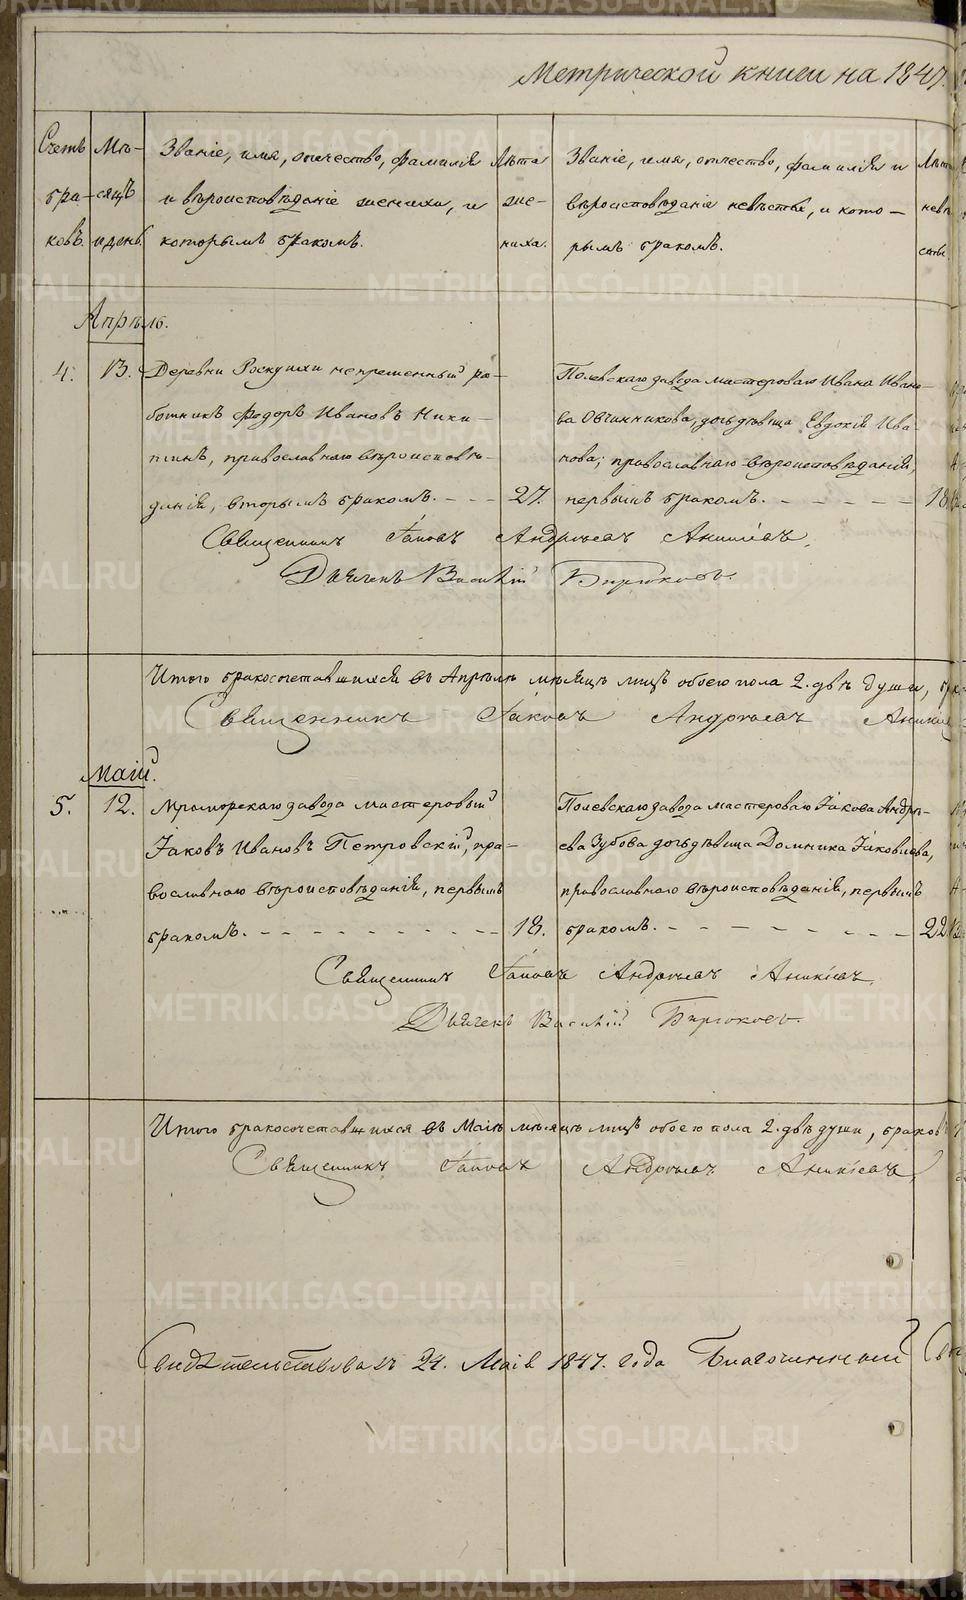 Метрической книги на 1847.
Счетъ бра-ковъ.
Мѣ-сяцъ и день.
Званіе, имя, отчество, фамилія
и вѣроисповѣданіе жениха, и
которымъ бракомъ.
Лѣта
же-
ниха.
Званіе, имя, отчество, фамилія и
вѣроисповѣданіе невѣсты, и кото-
рымъ бракомъ.
Лѣта
невѣ
сты.
Апрѣль.
4. 13. Деревни Роскуихи непременный ра-
ботникъ Федоръ Ивановъ Ники-
тинъ, православнаго вѣроисповѣ-
данія, вторымъ бракомъ. - - - 27.
Полевскаго завода мастероваго Ивана Ивано-
ва Овчинникова, дочь дѣвица Евдокія Ива-
нова; православнаго вѣроисповѣданія,
первымъ бракомъ. - - - - - 18
Священникъ Іаковъ Андреевъ Аникіевъ.
Дьячекъ Василій Бирюковъ.
Итого бракосочетавшихся въ Апрѣлѣ мѣсяцѣ лицъ обоего пола 2. двѣ души,
Священникъ Іаковъ Андреевъ Аникіе
Маій.
5. 12. Мраморскаго завода мастеровый
Іаковъ Ивановъ Петровскій, пра-
вославнаго вѣроисповѣданія, первымъ
бракомъ. - - - - - - - - - - 18.
Полевскаго завода мастероваго Іакова Андре-
ева Зубова дочь дѣвица Домника Іаковлева,
православнаго вѣроисповѣданія, первымъ
бракомъ. - - - - - - - 22
Священникъ Іаковъ Андреевъ Аникіевъ.
Дьячекъ Василій Бирюковъ.
Итого бракосочетавшихся въ Маіѣ мѣсяцѣ лицъ обоего пола 2. двѣ души, браковъ
Священникъ Іаковъ Андреевъ Аникіевъ
Свидѣтельствовалъ 24. Маія 1847. года Благочинный
METRIKI.GASO-URAL.RU